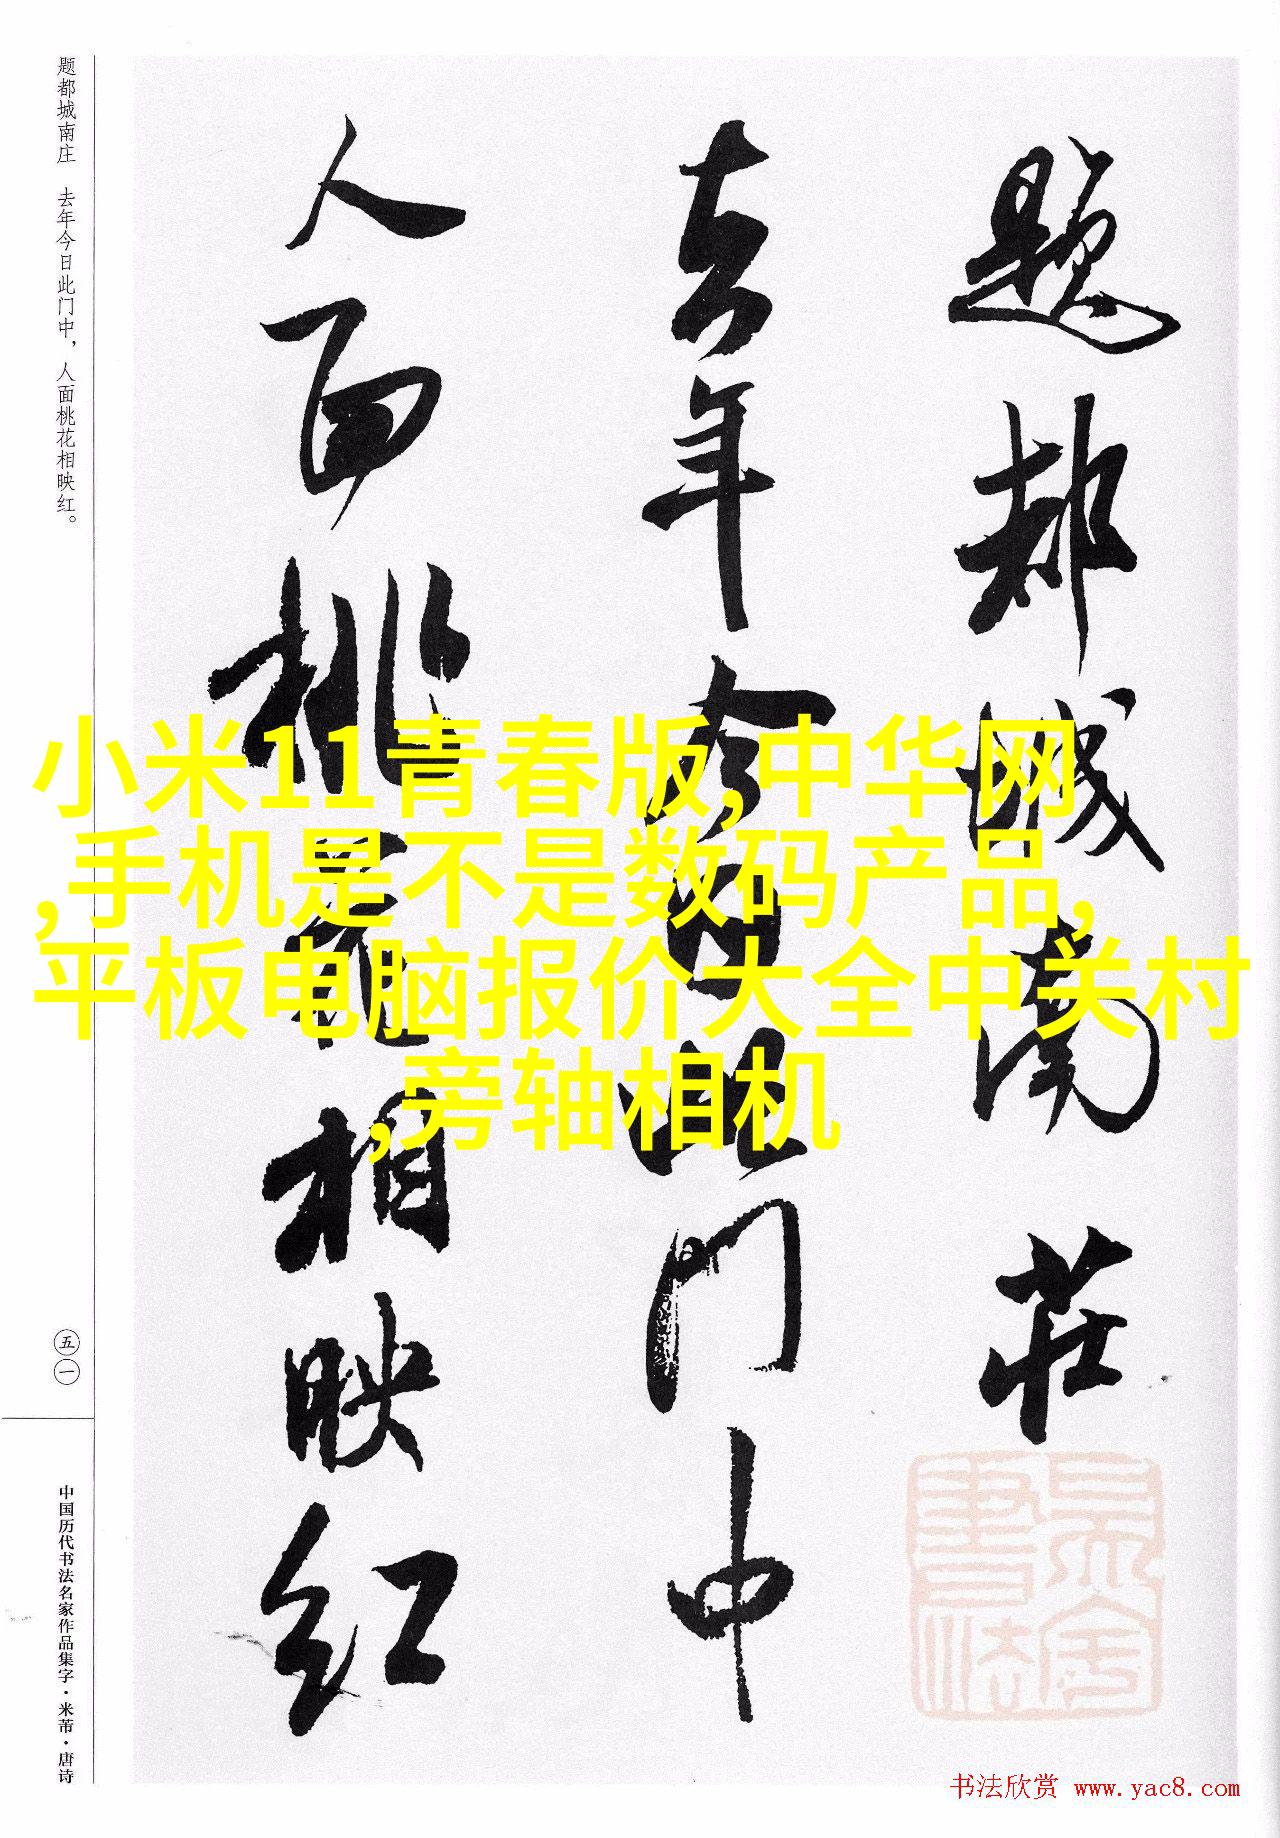 题都城南庄
去年今日此门中
人面桃花相映红
题都城南庄 去年今日此门中，人面桃花相映红。
五一
中国历代书法名家作品集字·米芾·唐诗
小米11青春版,中华网
,手机是不是数码产品,
平板电脑报价大全中关村
,旁轴相机
书法欣赏 www.yac8.com